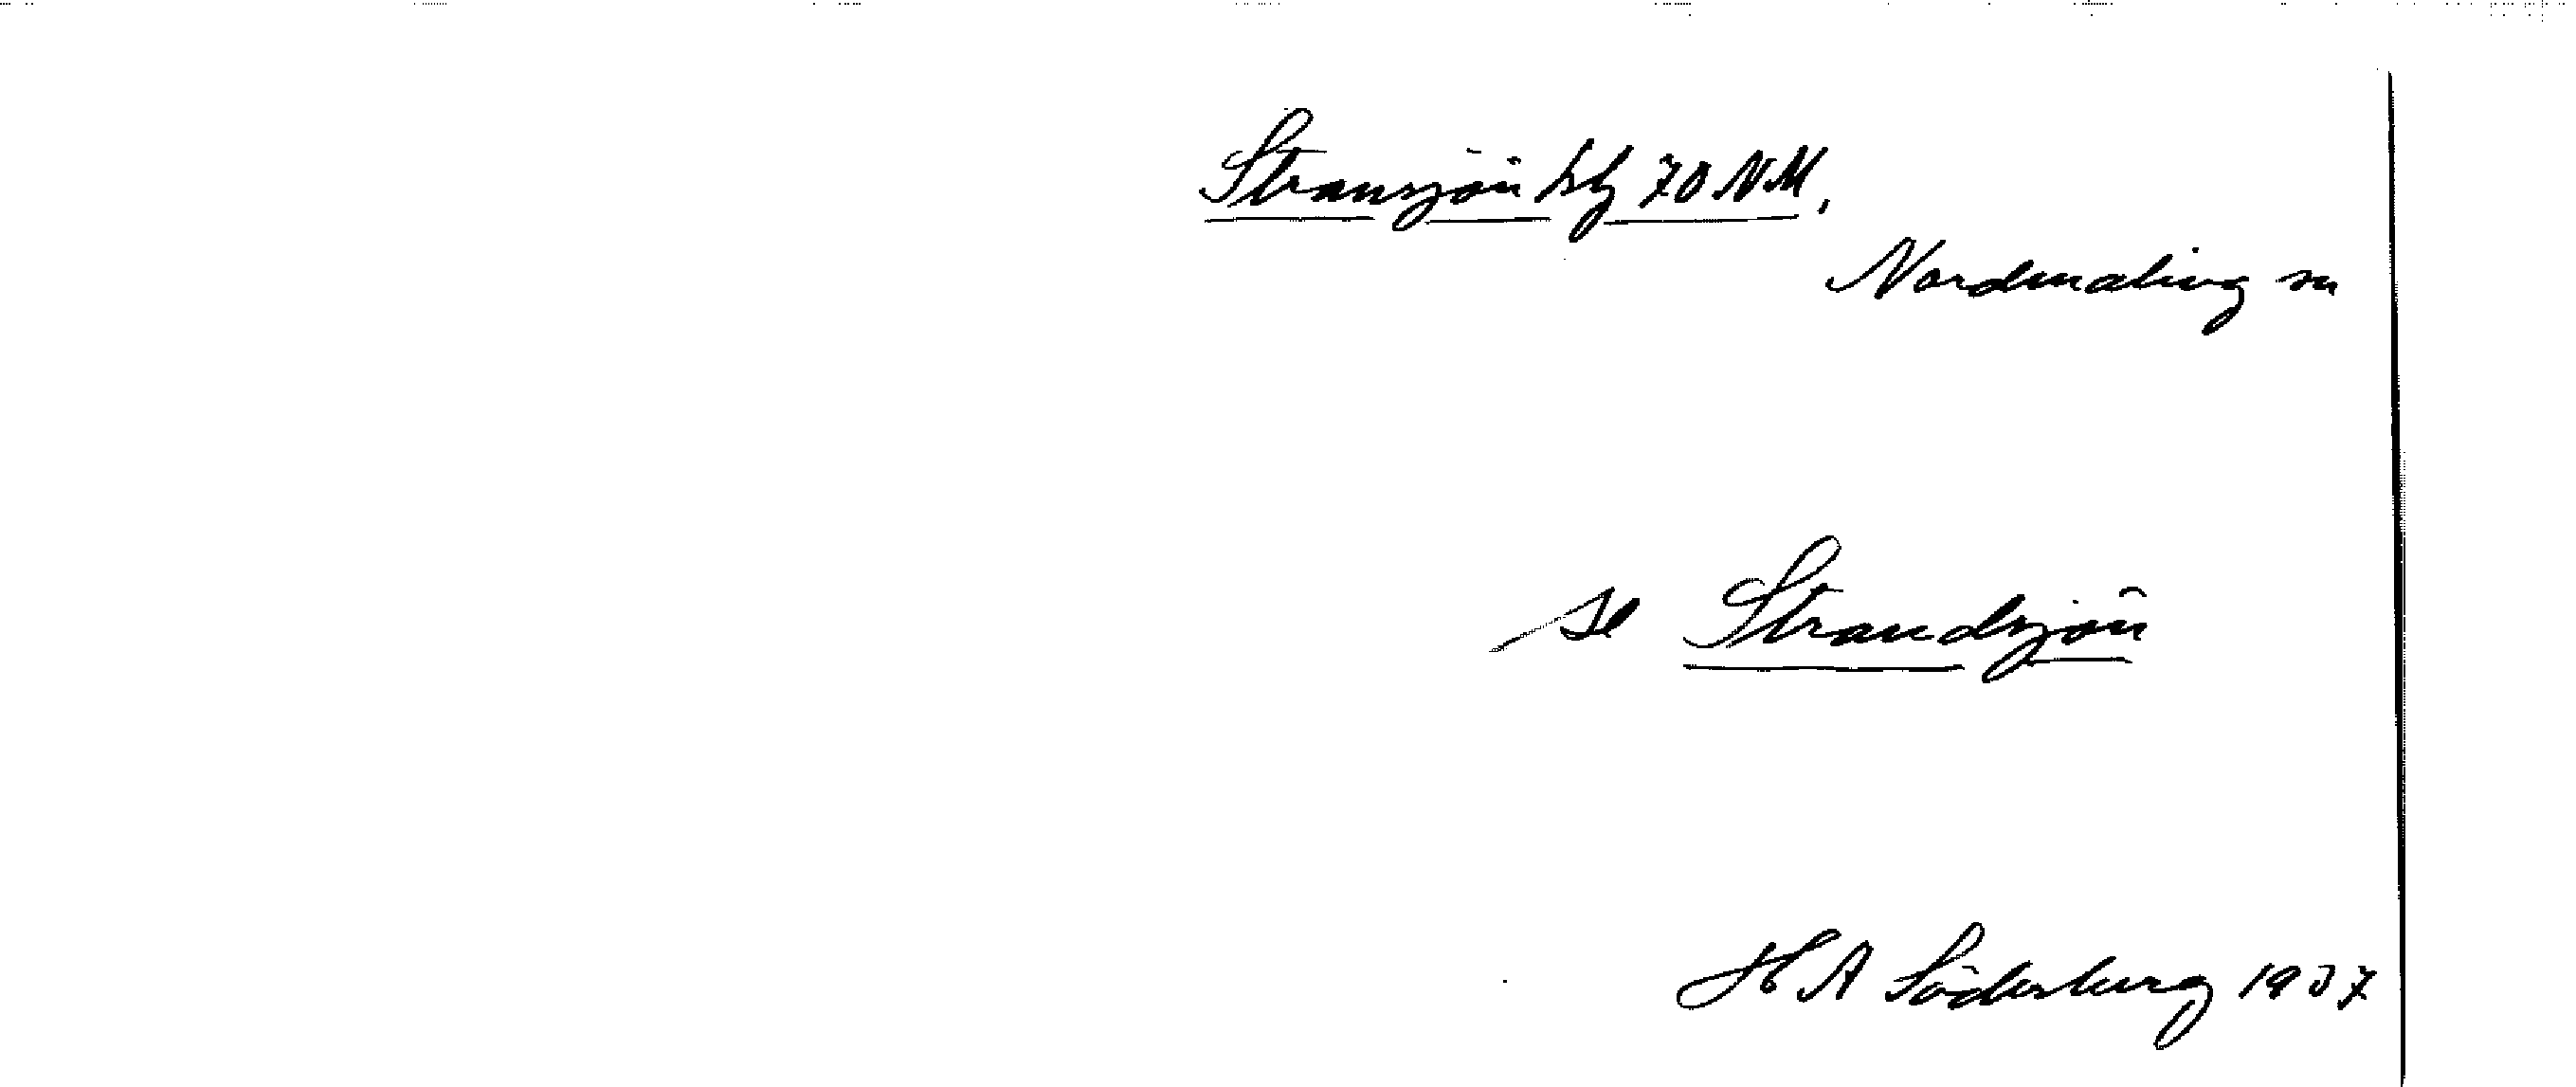 Stransjön kbl 70 NM,
Nordmaling sn
se Strandsjön
H A Söderberg 1937